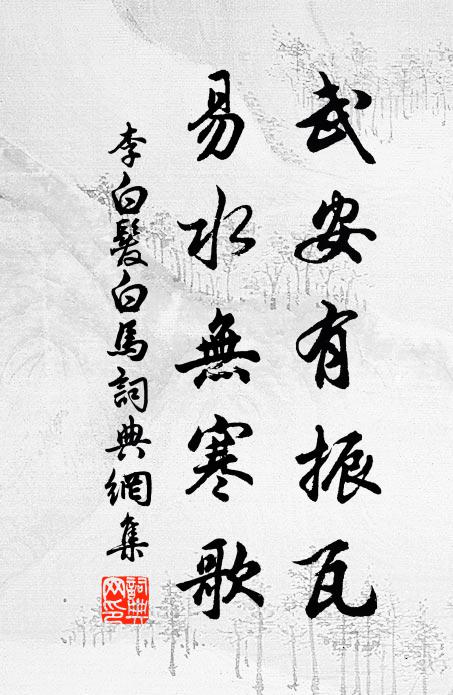 武安有振瓦
易水無寒歌
李白髮白馬詞典網集
詞典網印